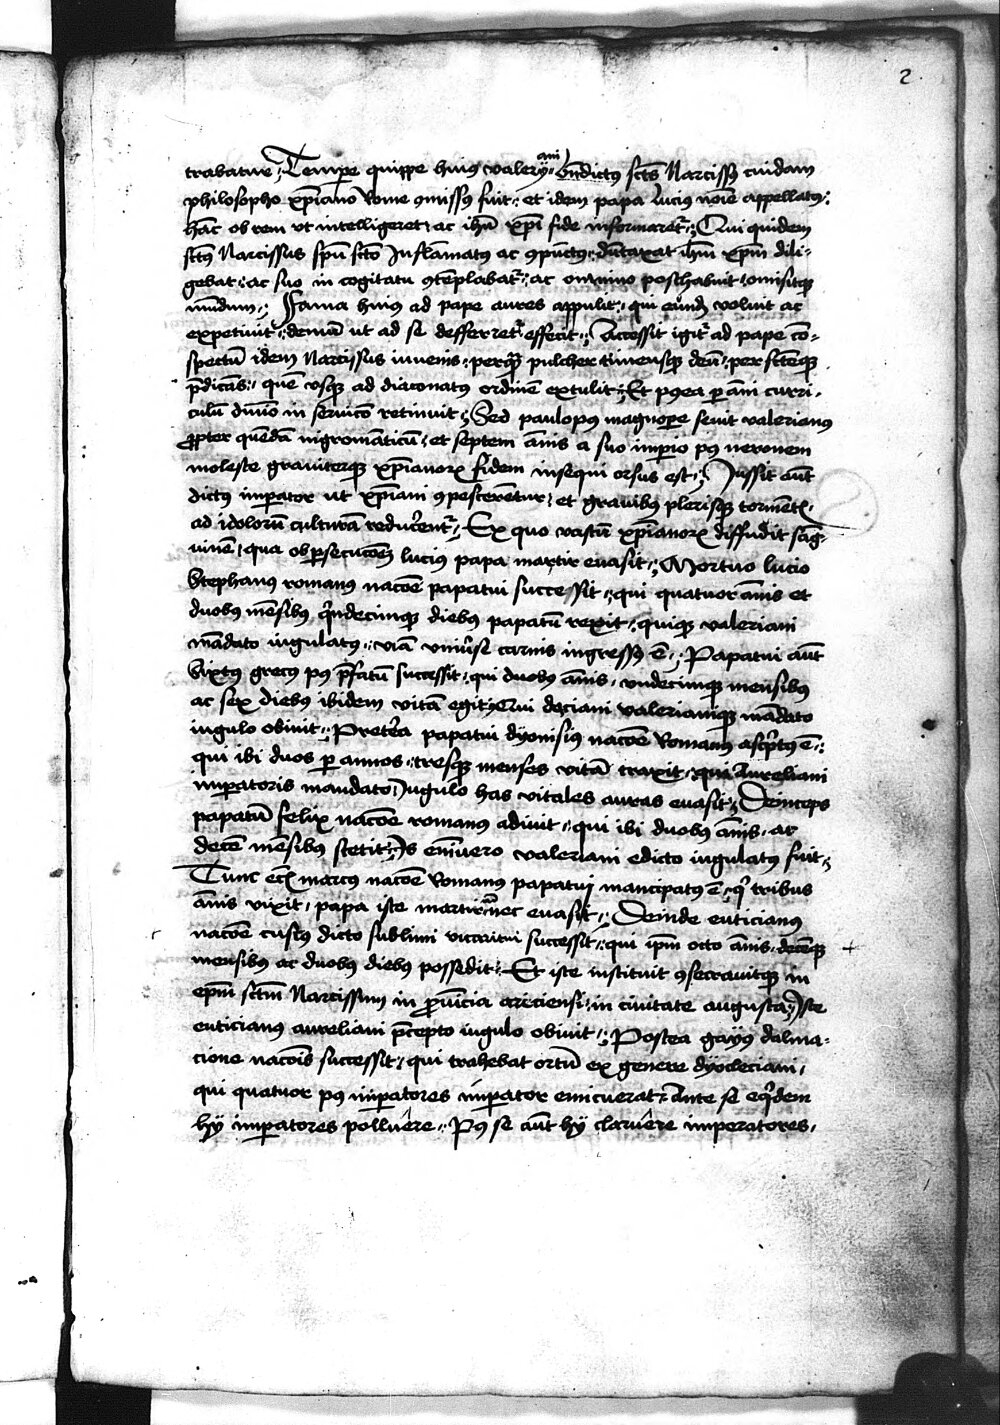 2
trabatur Tempore quippe huius valeryani bndictus sctus Narcissus cuidam
philosopho xpiano Rome 9missus fuit et idem papa lucius noie appellatus
hac ob rem vt intelligeret ac ihu xpi fide informaret Qui quidem
sctus Narcissus spu scto Inflamatus ac 9punctus dutaxat ihm xpm dili-
gebat ac suo in cogitatu 9templabat ac omnino posthabuit omisitque
mudum Fama huius ad pape aures appulit qui eunde voluit ac
expetiuit demu ut ad se defferret effecit Accessit igit ad pape co-
spectu idem Narcissus iuuenis perque pulcher timensque deu per scteque
pdicas que vsque ad diaconatus ordine extulit Et p9ea p ani curri-
culu duno in seruico retinuit Sed paulopus magnopere seuit valerianus
propter queda nigromaticu et septem annis a suo imperio pus neronem
moleste grauiterque xpianorum fidem insequi orsus est Jussit aut
dictus imperator ut xpiani 9pescerentur et grauibus plerisque torment
ad idoloru cultura reducerent Ex quo vastu xpianorum diffudit sag-
uine qua ob psecutoem lucius papa martir euasit Mortuo lucio
Stephanus romanus nacoe papatui successit qui quatuor annis et
duobus mesibus quindecimque diebus papatu rexit quique valeriani
madato iugulatus via vniuse carnis ingressus e Papatui aut
Sixtus grecus pus pfatu successit qui duobus annis vndecimque mensibus
ac sex diebus ibidem vita egit Qui deciani valerianique madato
iugulo obiuit Preterea papatui dyonisius nacoe Romanus ascptus e
qui ibi duos p annos tresque menses vita traxit qui Aureliani
imperatoris mandato Jugulo has vitales auras euasit Deinceps
papatu felix nacoe romanus adiuit qui ibi duobus annis ac
dece mesibus stetit Is enimuero valeriani edicto iugulatus fuit
Tunc eci marcus nacoe Romanus papatui mancipatus e q tribus
annis vixit papa iste martir nec euasit Deinde euticianus
nacoe tuscus dicto sublimi viccritui successit qui ipm octo annis deceque
mensibus ac duobus diebus possedit Et iste instituit 9secrauitque in
epm sctm Narcissum in prouicia areciensi in ciuitate augusta Iste
euticianus aureliani pcepto iugulo obiuit Postea gayus dalma-
cione nacois successit qui trahebat ortu ex genere dyocleciani
qui quatuor pus imperatores imperator emicuerat Ante se equidem
hy imperatores polluere Pus se aut hy claruere imperatores